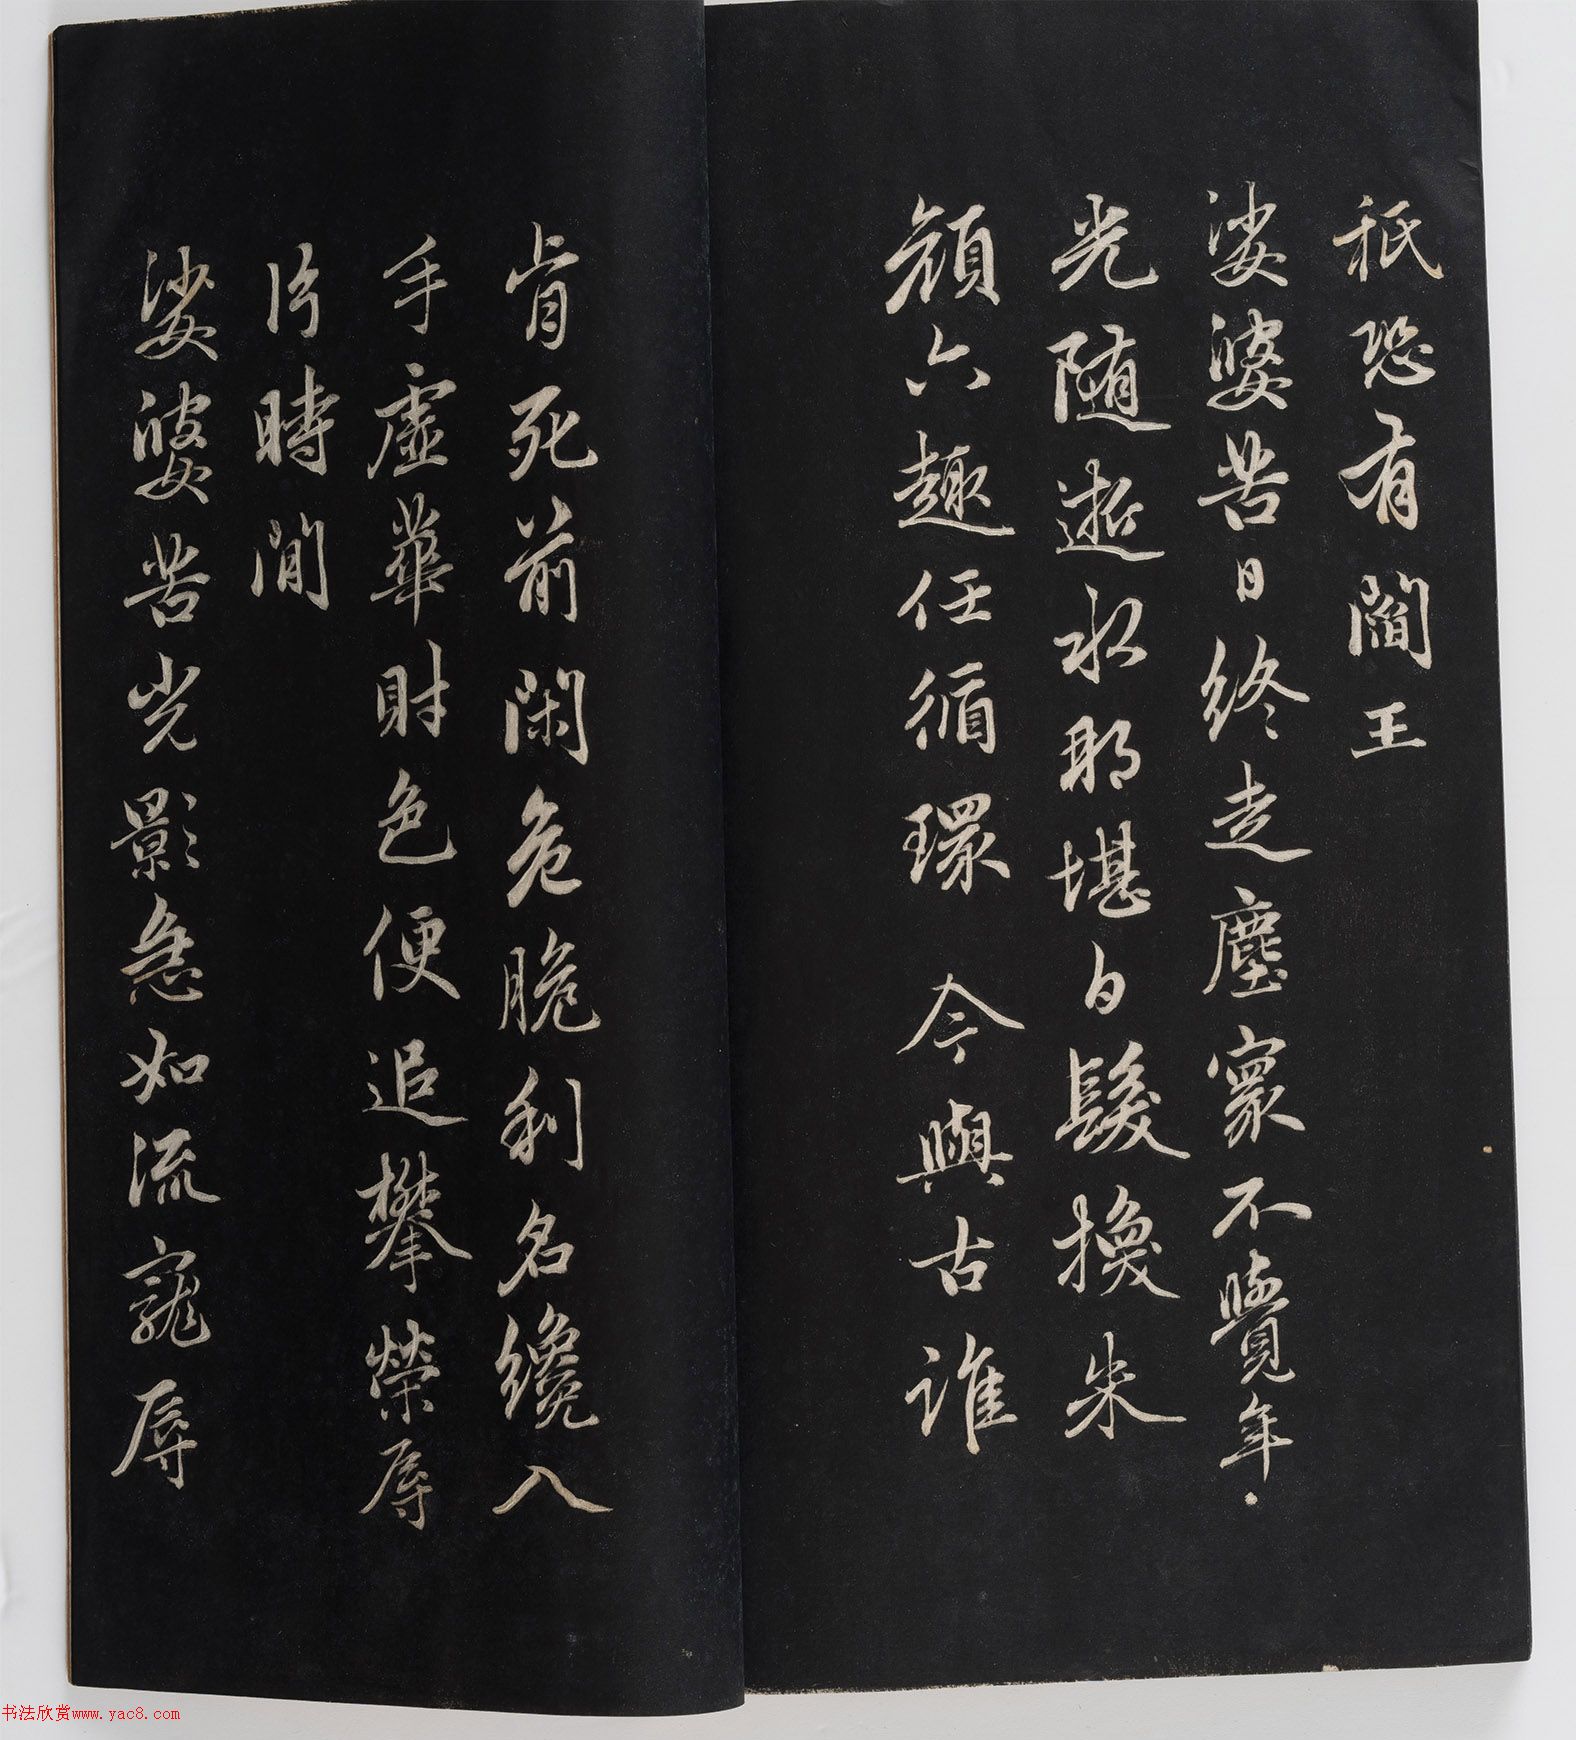 秖恐有閻王
娑婆苦日終走塵寰不覺年
光随逝水那堪白髮換朱
顔六趣任循環 今與古誰
肯死前閑危脆利名纔入
手虛華財色便追攀榮辱
片時間
娑婆苦光影急如流寵辱
书法欣赏www.yac8.com